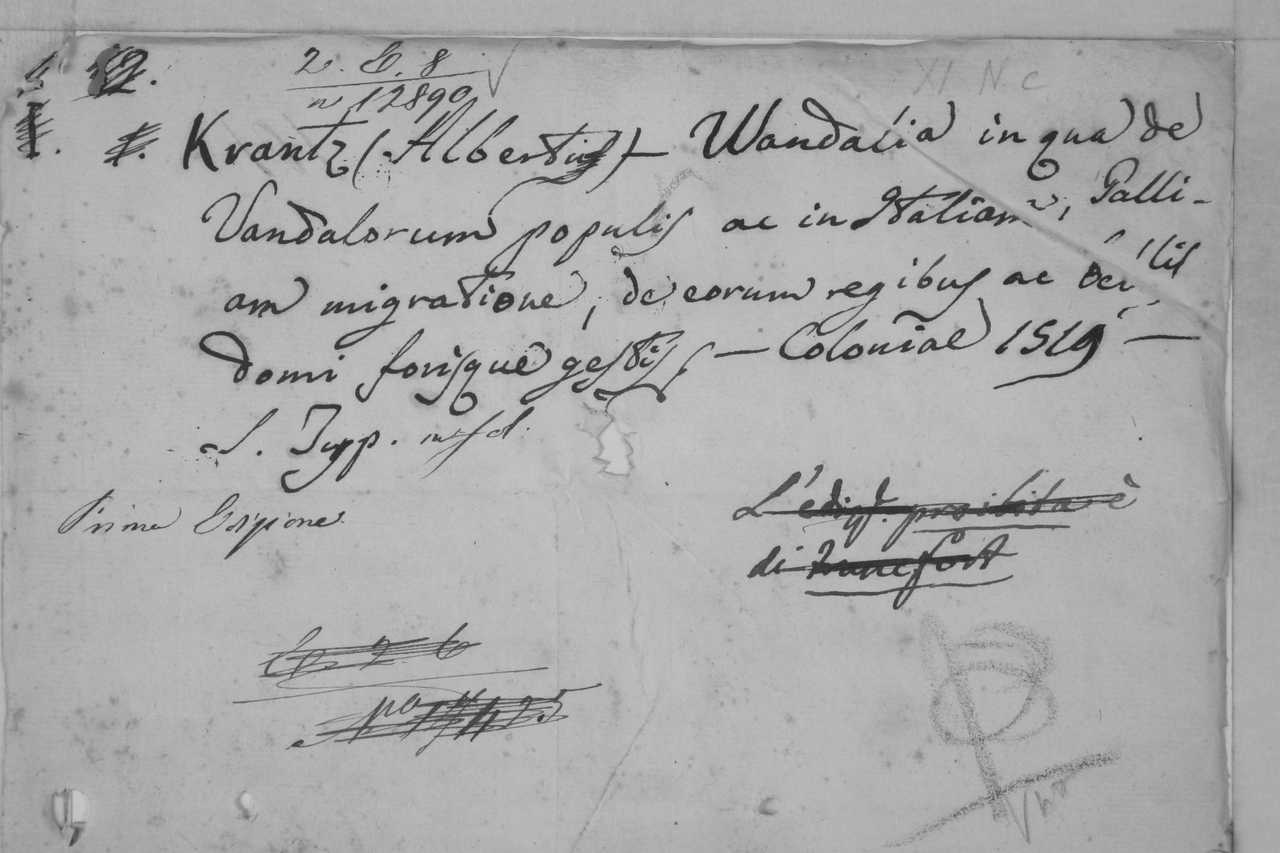 2. 6. 8
n 12890
XI N. c
Krantz (Albertus) — Wandalia in qua de
Vandalorum populis ac in Italiam, Galli-
am migratione, de eorum regibus ac bellis
domi forisque gestis — Coloniae 1519 —
S. Typp. in fol.
Prima Edizione
L'ediz. proibita è
di Francfort